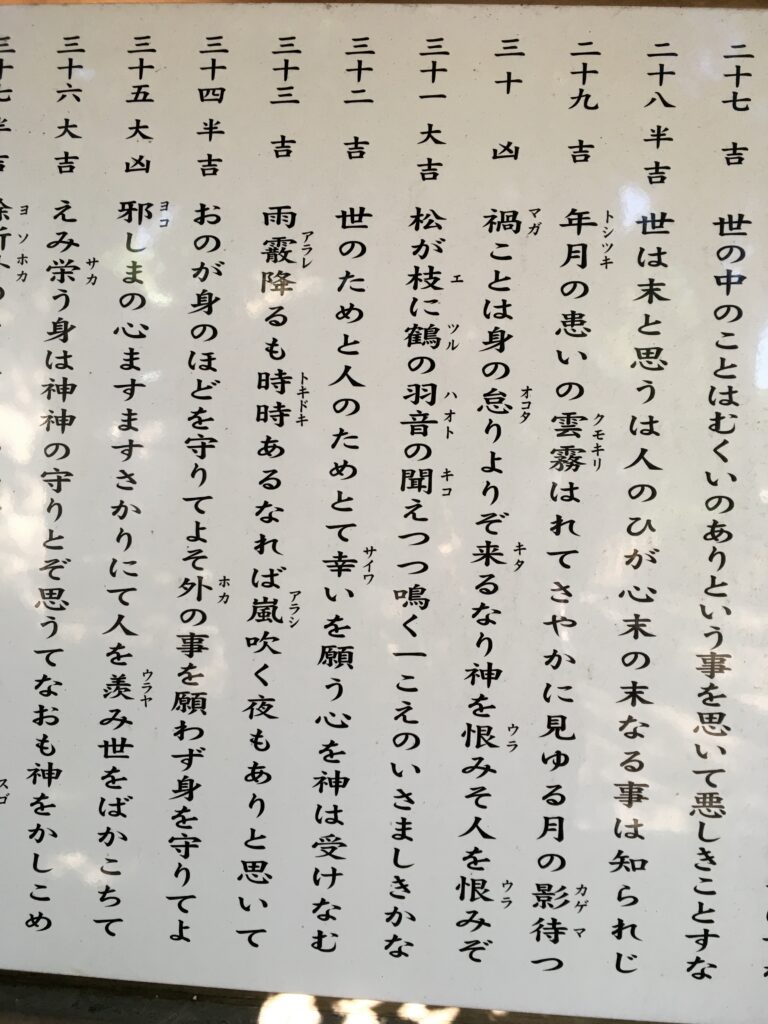 二十七 吉 世の中のことはむくいのありという事を思いて悪しきことすな
二十八 半吉 世は末と思うは人のひが心末の末なる事は知られじ
二十九 吉 年月の患いの雲霧はれてさやかに見ゆる月の影待つ
トシツキ クモキリ カゲマ
三十 凶 禍ことは身の怠りよりぞ来るなり神を恨みそ人を恨みぞ
マガ オコタ キタ ウラ ウラ
三十一 大吉 松が枝に鶴の羽音の聞えつつ鳴く一こえのいさましきかな
エ ツル ハオト キコ
三十二 吉 世のためと人のためとて幸いを願う心を神は受けなむ
サイワ
三十三 吉 雨霰降るも時時あるなれば嵐吹く夜もありと思いて
アラレ トキドキ アラシ
三十四 半吉 おのが身のほどを守りてよそ外の事を願わず身を守りてよ
ホカ
三十五 大凶 邪しまの心ますますさかりにて人を羨み世をばかこちて
ヨコ ウラヤ
三十六 大吉 えみ栄う身は神神の守りとぞ思うてなおも神をかしこめ
サカ
三十七 半吉
ヨソホカ スゴ